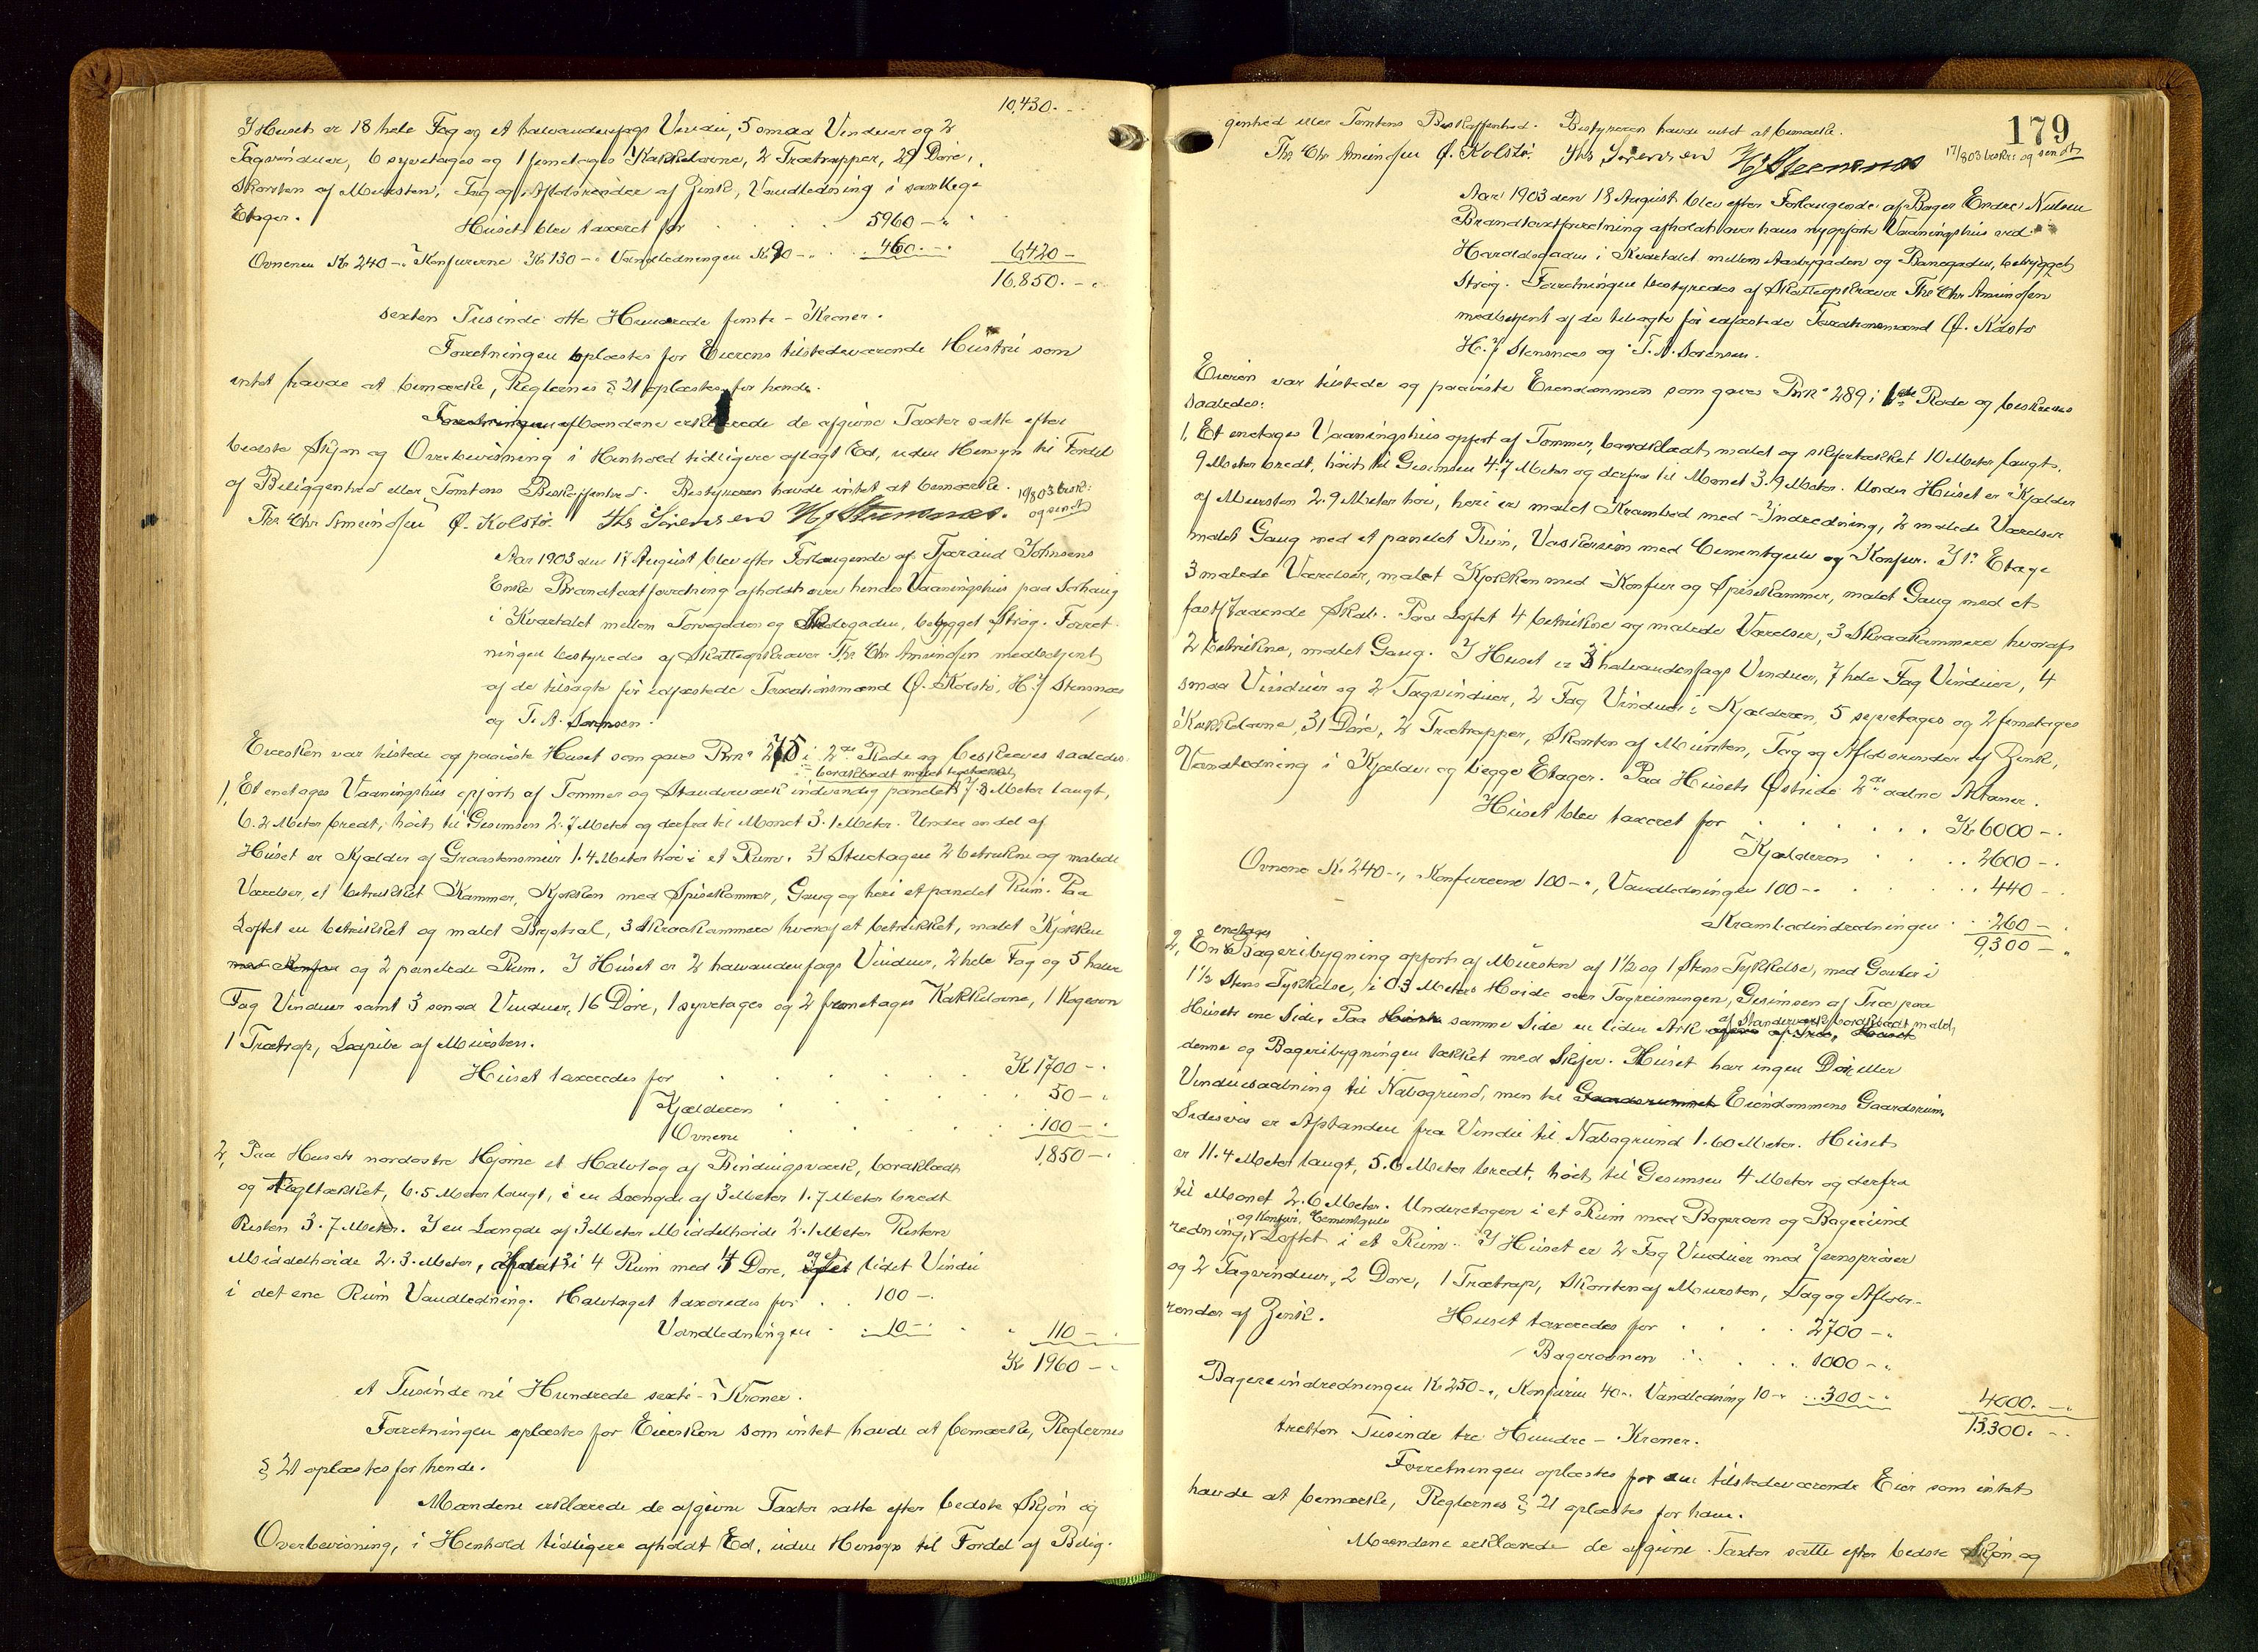 10,430.--
I Huset er 18 hele Fag og et halvandenfags Vindu, 5 smaa Vinduer og 2
Tagvinduer, 6 syvetages og 1 femetages Kakkelovne, 2 Trætrapper, 29 Döre,
Skorsten af Mursten, Tag og Aflöbsrender af Zink, Vandledning i samtlige
Etager.
Huset blev taxeret for 5960-"
Ovnene Kr 240-" Konfurerne Kr 130-" Vandledningen Kr 90-" 460.-" 6420-
16.850.-"
sexten Tusinde otte Hundrede femti - Kroner.
Forretningen oplæstes for Eierens tilstedeværende Hustru som
intet havde at bemærke, Reglernes § 21 oplæstes for hende.
Forretningen afMændene erklærede de afgivne Taxter satte efter
bedste Skjøn og Overbevisning i Henhold tidligere aflagt Ed, uden Hensyn til Fordel
af Beliggenhed eller Tomtens Beskaffenhed. Bestyreren havde intet at bemærke.
19/8 03 beskr: og sendt
Ths Chr Amundsen Q. Kolstø. Ths Sørensen H J Stensnæs.
Aar 1903 den 18 August blev efter Forlangende af Tjæraud Johnsens
Enke Brandtaxtforretning afholdt over hendes Vaaningshus paa Sørhaug
i Kvartalet mellem Torvegaden og Skolegaden, bebygget Strøg. Forret-
ningen bestyredes af Skatteopkræver Ths Chr Amundsen medbetjent
af de tilsagte før edfæstede Taxationsmænd Q. Kolstø, H. J Stensnæs
og T. A. Sørensen.
Eiersken var tilstede og paaviste Huset som gaves Brn° 275 i 2den Rode og beskreves saaledes:
bordklædt malet teglhængt
1, Et enetages Vaaningshus opført af Tømmer og Standerværk indvendig panelet 7.8 Meter langt,
6.2 Meter bredt, høit til Gesimsen 2.7 Meter og derfra til Mønet 3.1 Meter. Under en del af
Huset er Kjælder af Graastensmur 1.4 Meter høi i et Rum. I Stuetagen 2 betrukne og malede
Værelser, et betrukket Kammer, Kjøkken med Spisekammer, Gang og heri et panelet Rum. Paa
Loftet en betrukket og malet Brystsal, 3 Skraakammere hvoraf et betrukket, malet Kjøkken
med Konfur og 2 panelede Rum. I Huset er 2 halvandenfags Vinduer, 2 hele Fag og 5 halve
Fag Vinduer samt 3 smaa Vinduer, 16 Döre, 1 syvetages og 2 femetages Kakkelovne, 1 Kogeovn
1 Trætrap, Løspibe af Mursten.
Huset taxeredes for Kr 1700-"
Kjælderen 50-"
Ovnene 100-"
1,850-"
2, Paa Husets nordøstre Hjørne et Halvtag af Bindingsværk, bordklædt
og Tegltækket, 6.5 Meter langt, i en Længde af 3 Meter 1.7 Meter bredt
Resten 3.7 Meter. I en Længde af 3 Meter Middelhøide 2.1 Meter Resten
Middelhøide 2.3 Meter, afdelt i 4 Rum med 4 Døre, og et lidet Vindu
i det ene Rum Vandledning. Halvtaget taxeredes for 100-.
Vandledningen 10-" 110-
Kr 1960-"
et Tusinde ni Hundrede sexti - Kroner.
Forretningen oplæstes for Eiersken som intet havde at bemærke, Reglernes
§ 21 oplæstes for hende.
Mændene erklærede de afgivne Taxter satte efter bedste Skjøn og
Overbevisning, i Henhold tidligere afholdt Ed, uden Hensyn til Fordel af Belig-
179
genhed eller Tomtens Beskaffenhed. Bestyreren havde intet at bemærke.
Ths Chr Amundsen Q. Kolstø. Ths Sørensen H J Stensnæs 19/8 03 beskr: og sendt
Aar 1903 den 18 August blev efter Forlangende af Bager Endre Nilsen
Brandtaxtforretning afholdt over hans nyopførte Vaaningshus ved
Haraldsgaden i Kvartalet mellem Aasbygaden og Banegaden, bebygget
Strøg. Forretningen bestyredes af Skatteopkræver Ths Chr Amundsen
medbetjent af de tilsagte før edfæstede Taxationsmænd Q. Kolstø
H. J Stensnæs og T. A. Sørensen.
Eieren var tilstede og paaviste Eiendommen som gaves Brn° 289 i 1ste Rode og beskreves
saaledes:
1, Et enetages Vaaningshus opført af Tømmer, bordklædt malet og skifertækket 10 Meter langt,
9 Meter bredt, høit til Gesimsen 4.7 Meter og derfra til Mønet 3.9 Meter. Under Huset er Kjælder
af Mursten 2.9 Meter høi, heri er malet Krambod med Indredning, 2 malede Værelser
malet Gang med et panelet Rum, Vaskerum med Cementgulv og Konfur. I 1ste Etage
3 malede Værelser, malet Kjøkken med Konfur og Spisekammer, malet Gang med et
fastståaende Skab. Paa Loftet 4 betrukne og malede Værelser, 3 Skraakammere hvoraf
2 betrukne, malet Gang. I Huset er 3 halvandenfags Vinduer, 7 hele Fag Vinduer, 4
smaa Vinduer og 2 Tagvinduer, 2 Fag Vinduer i Kjælderen, 5 syvetages og 2 femetages
Kakkelovne, 31 Döre, 2 Trætrapper, Skorsten af Mursten, Tag og Aflöbsrender af Zink,
Vandledning i Kjælder og begge Etager. Paa Husets Østside 2de aabne Altaner.
Huset blev taxeret for Kr 6000-.
Kjælderen 2600-.
Ovnene Kr 240-", Konfurerne 100-", Vandledningen 100-" 440-
Krambodindredningen 260-
9,300-"
enetages
2, En Bageribygning opført af Mursten af 1½ og 1 Stens Tykkelse, med Gavler i
1½ Stens Tykkelse, i 0.3 Meters Høide over Tagreisningen, Gesimsen af Træ paa
af Standerværk bordklædt malet,
Husets ene Side. Paa Husets samme Side en liden Ark opført af Træ, Huset
denne og Bageribygningen tækket med Skifer. Huset har ingen Dör eller
Vinduesaabning til Nabogrund, men til Gaardsrummet Eiendommens Gaardsrum.
Sidesvis er Afstanden fra Vindu til Nabogrund 1.60 Meter. Huset
er 11.4 Meter langt, 5.6 Meter bredt, høit til Gesimsen 4 Meter og derfra
til Mønet 2.6 Meter. Underetagen i et Rum med Bagerovn og Bageriind
og Konfur, Cementgulv
redning, Loftet i et Rum. I Huset er 2 Fag Vinduer med Jernsprosser
og 2 Tagvinduer, 2 Döre, 1 Trætrap, Skorsten af Mursten, Tag og Aflöbs-
render af Zink.
Huset taxeredes for 2700-"
Bagerovnen 1000-"
Bageriindredningen Kr 250-", Konfuren 40-" Vandledning 10-" 300-" 4000.-"
13.300.-"
tretten Tusinde tre Hundre - Kroner.
Forretningen oplæstes for den tilstedeværende Eier som intet
havde at bemærke, Reglernes § 21 oplæstes for ham.
Mændene erklærede de afgivne Taxter satte efter bedste Skjøn og